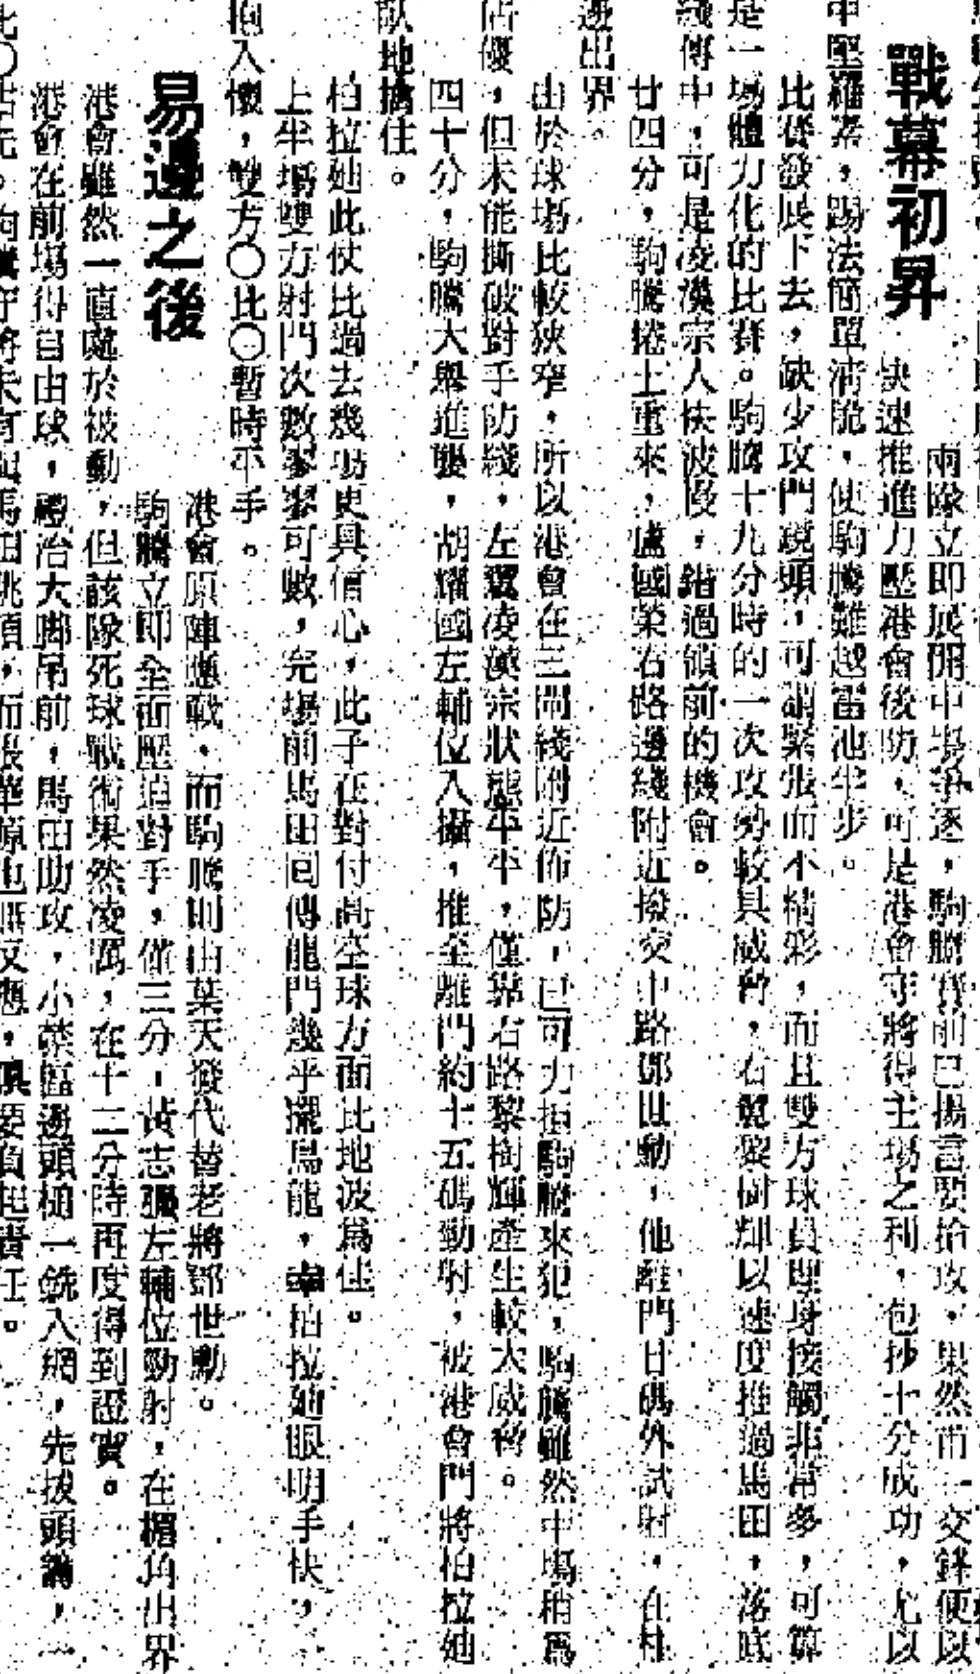 戰幕初昇
兩隊立即展開中場爭逐，駒騰賽前已揚言要搶攻，果然甫一交鋒便以
快速推進力壓港會後防，可是港會守將得主場之利，包抄十分成功，尤以
中堅羅素，踢法簡單清脆，使駒騰難越雷池半步。
比賽發展下去，缺少攻門鏡頭，可謂緊張而不精彩，而且雙方球員埋身接觸非常多，可算
是一場體力化的比賽。駒騰十九分時的一次攻勢較具威脅，右翼黎樹輝以速度推過馬田，落底
綫傳中，可是凌漢宗人快波慢，錯過領前的機會。
廿四分，駒騰捲上重來，盧國榮右路邊綫附近撥交中路鄧世勳，他離門廿碼外試射，在柱
邊出界。
由於球場比較狹窄，所以港會在三閘綫附近佈防，已可力拒駒騰來犯，駒騰雖然中場稍爲
佔優，但未能撕破對手防綫，左翼凌漢宗狀態平平，僅靠右路黎樹輝產生較大威脅。
四十分，駒騰大舉進襲，胡耀國左輔位入攝，推至離門約十五碼勁射，被港會門將柏拉廸
臥地擒住。
柏拉廸此仗比過去幾場更具信心，此子在對付高空球方面比地波爲佳。
上半場雙方射門次數寥寥可數，完場前馬田回傳龍門幾乎擺烏龍，幸柏拉廸眼明手快，
抱入懷，雙方〇比〇暫時平手。
易邊之後
港會原陣應戰，而駒騰則由葉天發代替老將鄧世勳。
駒騰立即全面壓迫對手，僅三分，黃志強左輔位勁射，在楣角出界
港會雖然一直處於被動，但該隊死球戰術果然凌厲，在十二分時再度得到證實。
港會在前場得自由球，禮冶大脚吊前，馬田助攻，小禁區邊頭槌一銑入網，先拔頭籌，一
比〇佔先。